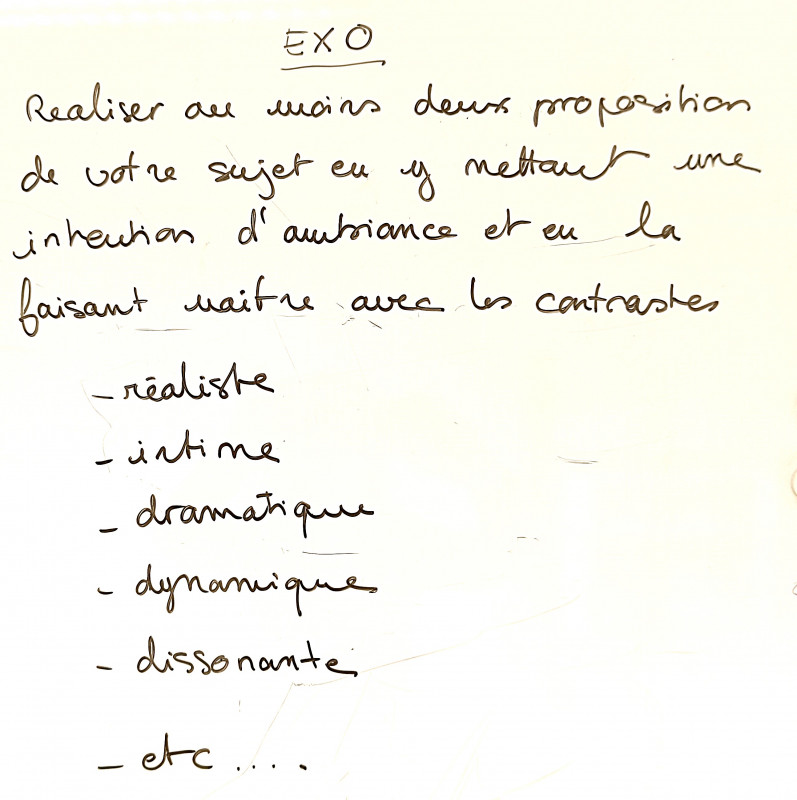 EXO
Realiser au moins deux proposition
de votre sujet en y mettant une
intention d'ambiance et en la
faisant naitre avec les contrastes
- réaliste
- intime
- dramatique
- dynamique
- dissonante
- etc ....